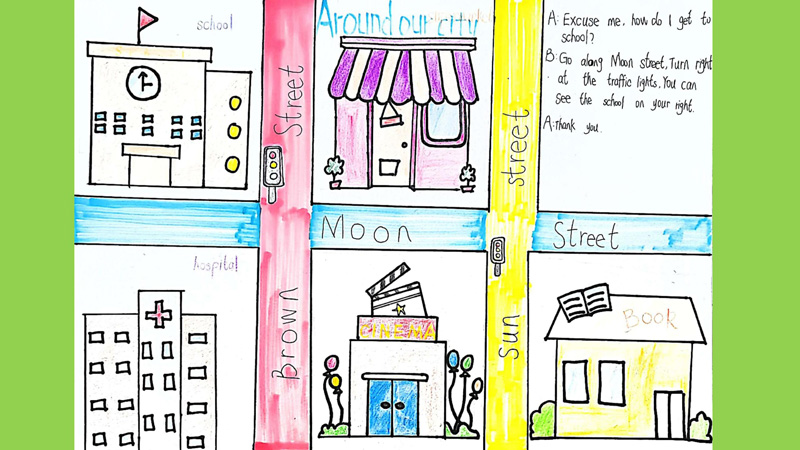 school
Around our city
A: Excuse me, how do I get to
school?
B: Go along Moon street, Turn right
at the traffic lights, You can
see the school on your right.
A: Thank you.
Brown Street
sun street
Moon Street
hospital
CINEMA
Book